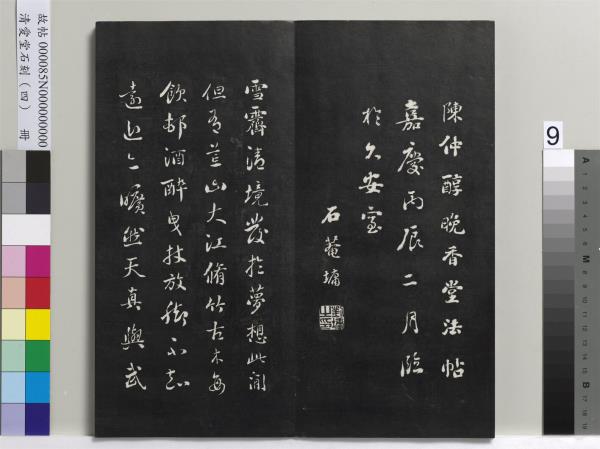 陳仲醇晚香堂法帖
嘉慶丙辰二月臨
於久安室
石菴墉
雪霽清境發於夢想此間
但有荒山大江脩竹古木每
飲邨酒醉曳杖放腳不知
遠近亦曠然天真與武
故帖 000085N000000000
清愛堂石刻(四) 冊
9